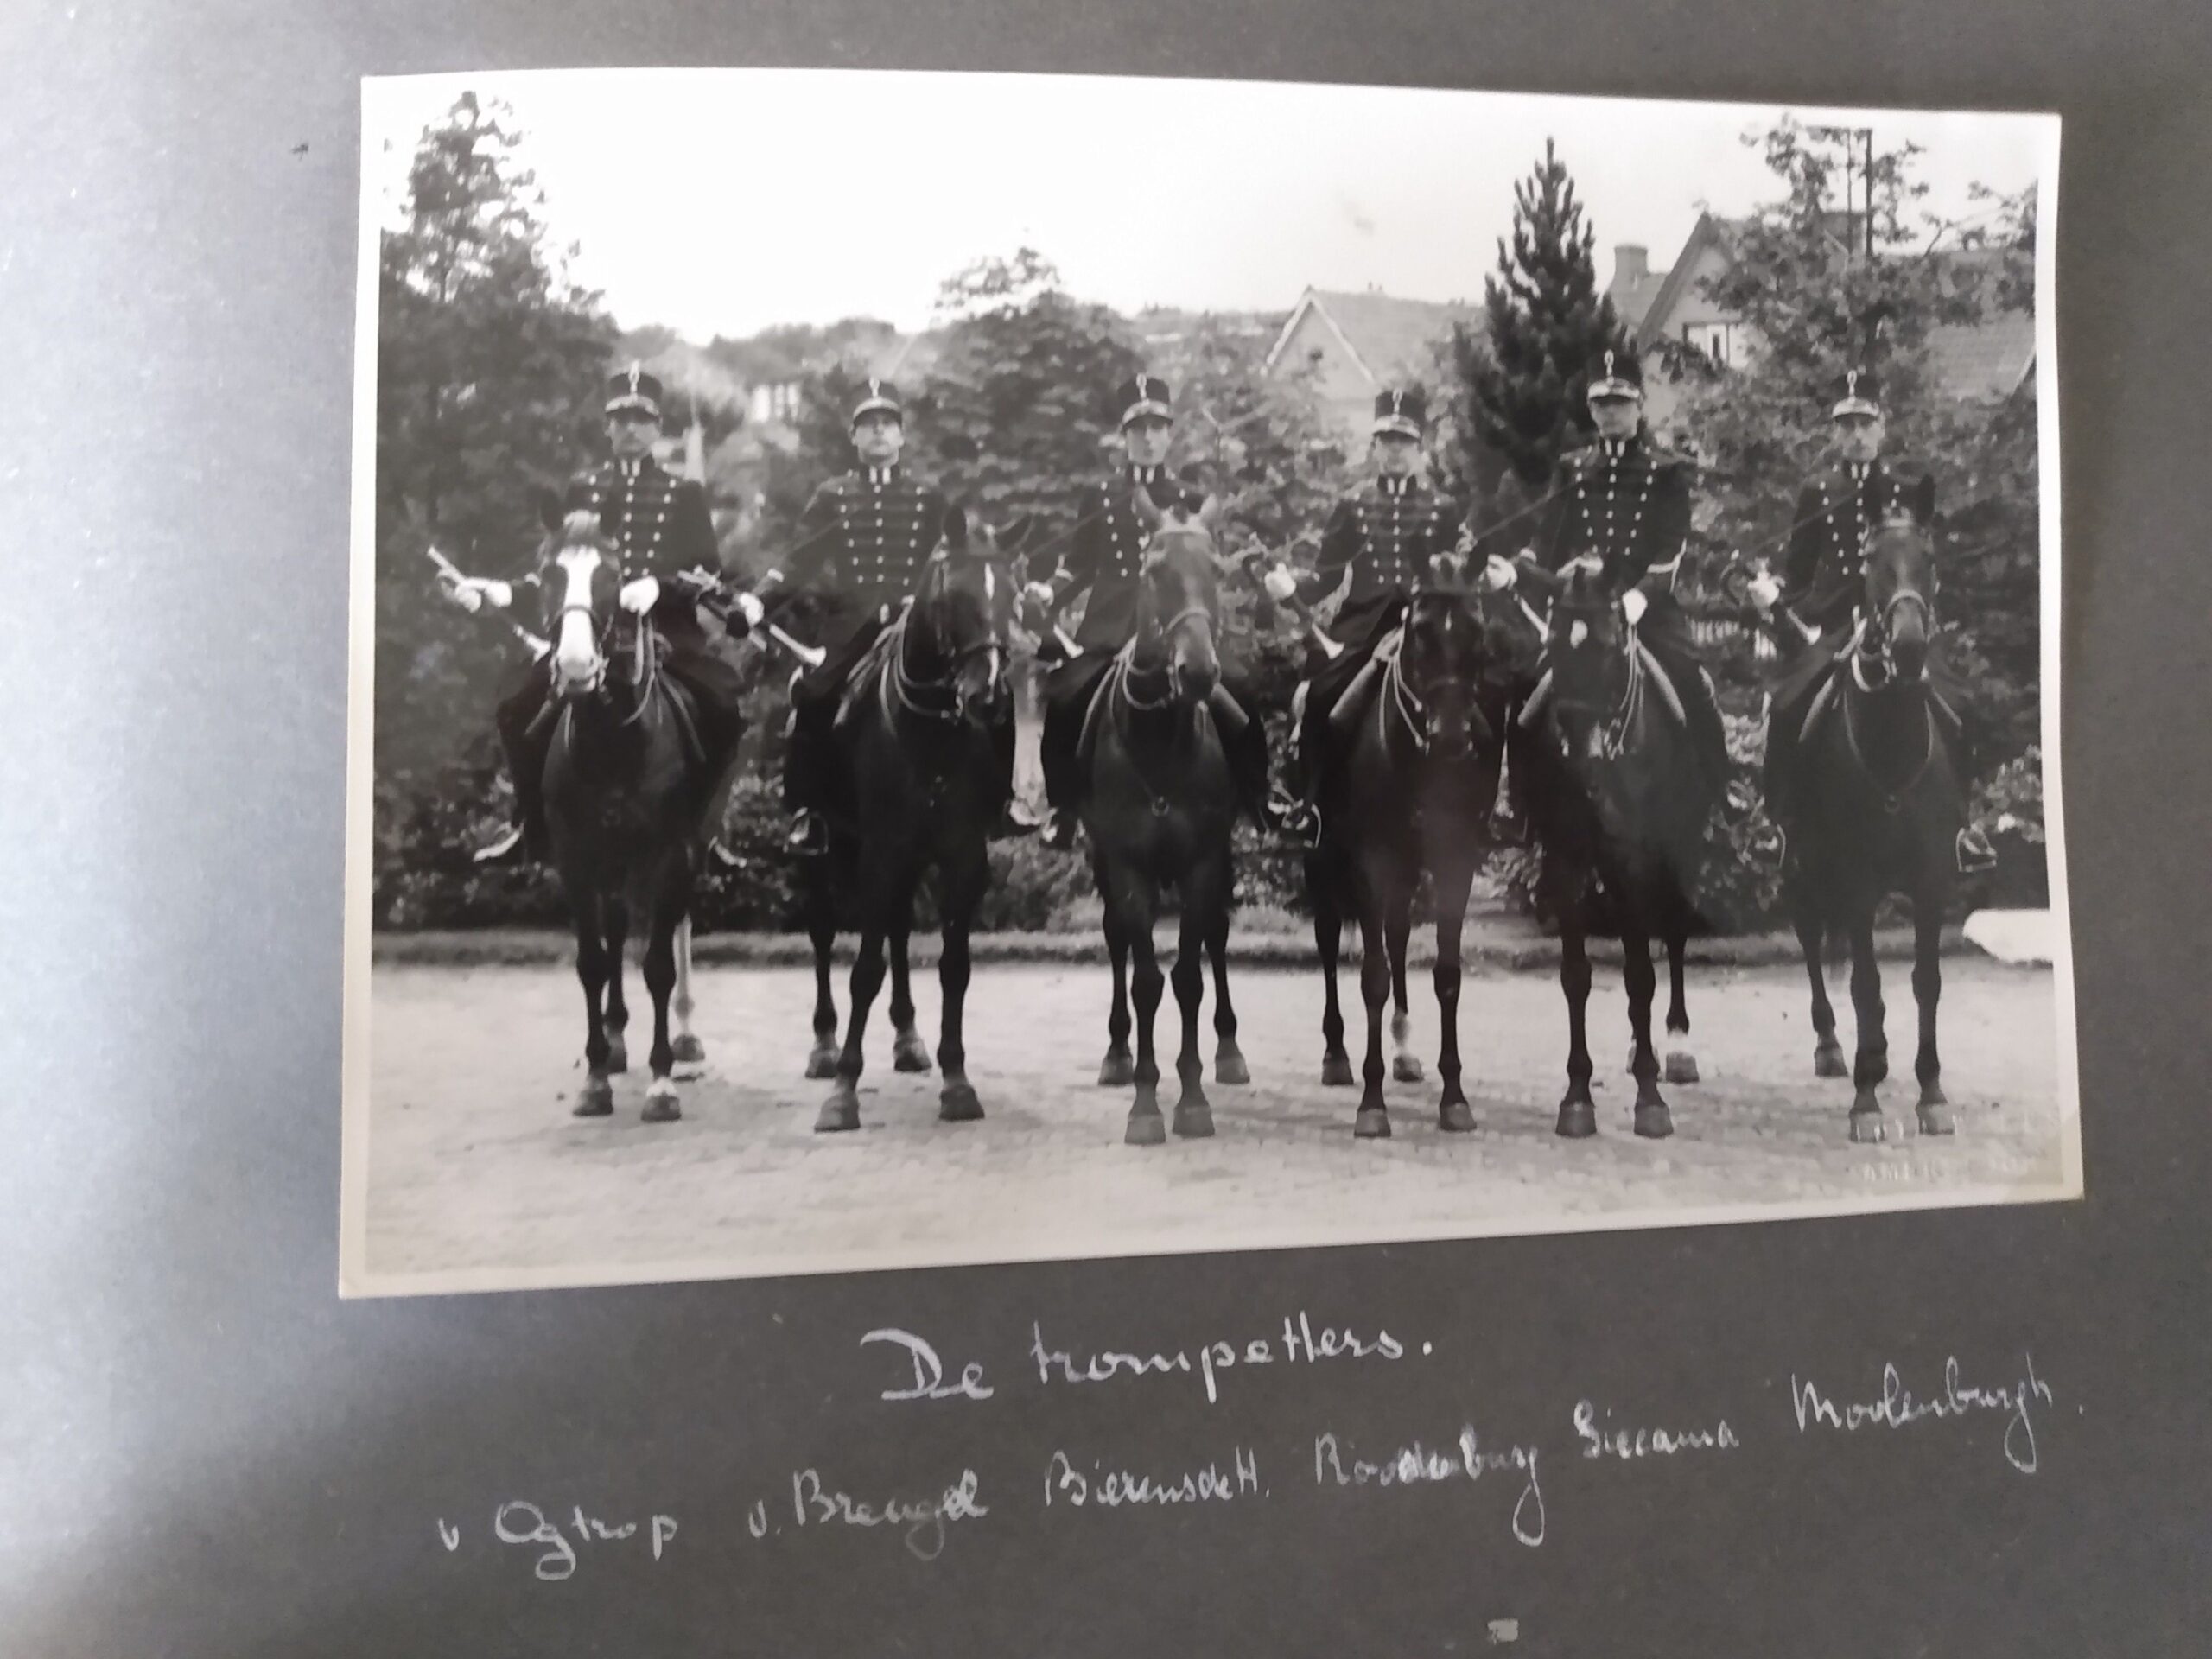 De trompetters.
v Ogtrop v. Breugel Bierensdett. Roodenburg Siccama Moolenburgh.